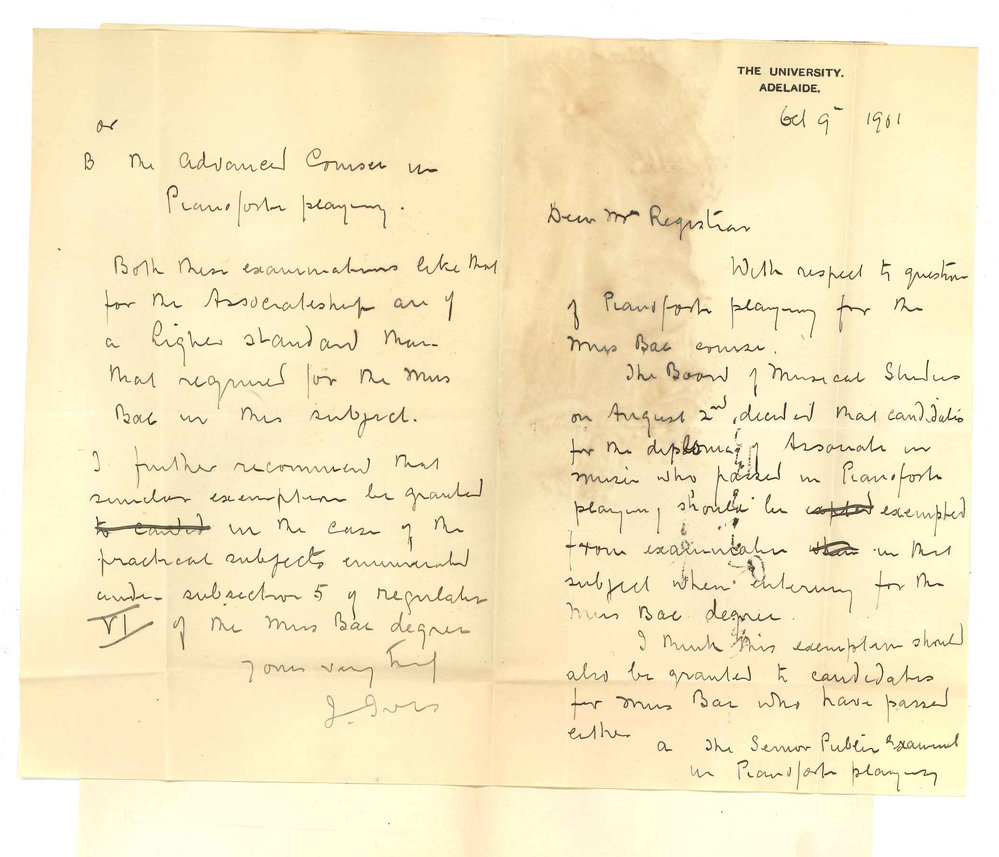 THE UNIVERSITY.
ADELAIDE.
Oct 9th 1901
Dear Mr Registrar
With respect to question
of Pianoforte playing for the
Mus Bac course.
The Board of Musical Studies
on August 2nd, decided that candidates
for the diploma of Associate in
music who passed in Pianoforte
playing should be exempted
from examination in that
subject when entering for the
Mus Bac degree.
I think this exemption should
also be granted to candidates
for Mus Bac who have passed
either
a The Senior Public Examinat
in Pianoforte playing
or
B The Advanced Course in
Pianoforte playing.
Both these examinations like that
for the Associateship are of
a higher standard than
that required for the Mus
Bac in this subject.
I further recommend that
similar exemption be granted
in the case of the
practical subjects enumerated
under subsection 5 of regulation
VI of the Mus Bac degree
Yours very truly
J. Ives